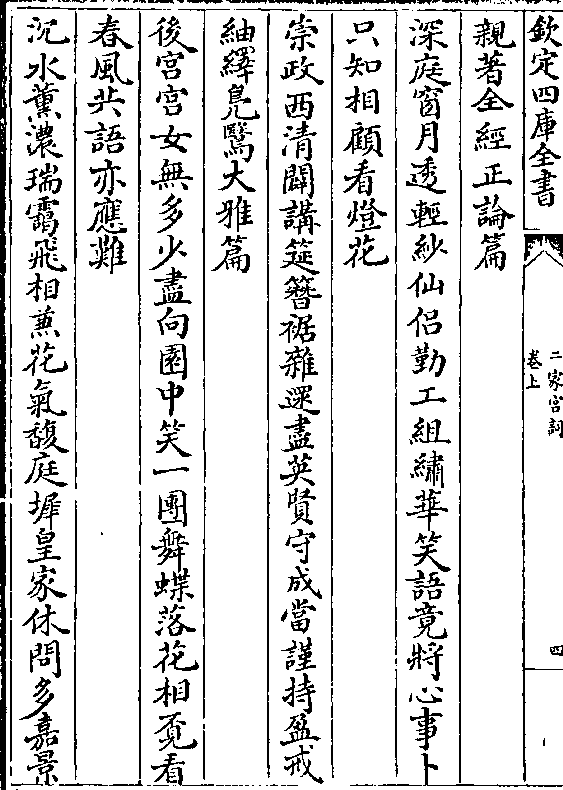 欽定四庫全書
二家宮詞
卷上
四
親著全經正論篇
深庭窗月透輕紗仙侣勤工組繡華笑語竟將心事卜
只知相顧看燈花
崇政西清闢講筵簪裾雜遝盡英賢守成當謹持盈戒
紬繹鳧鷖大雅篇
後宮宮女無多少盡向園中笑一團舞蝶落花相覔看
春風共語亦應難
沉水薰濃瑞靄飛相兼花氣馥庭墀皇家休問多嘉景